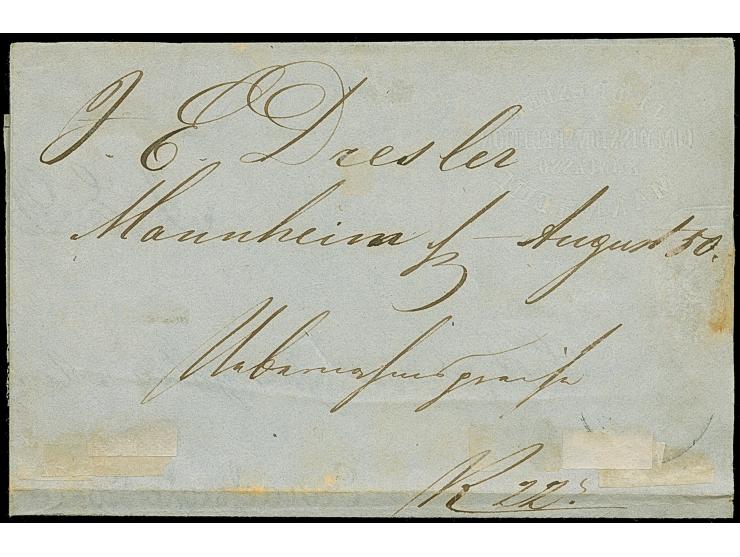 J. E. Dresler
Mannheim – August 50.
Uebernahmspreise
R 22